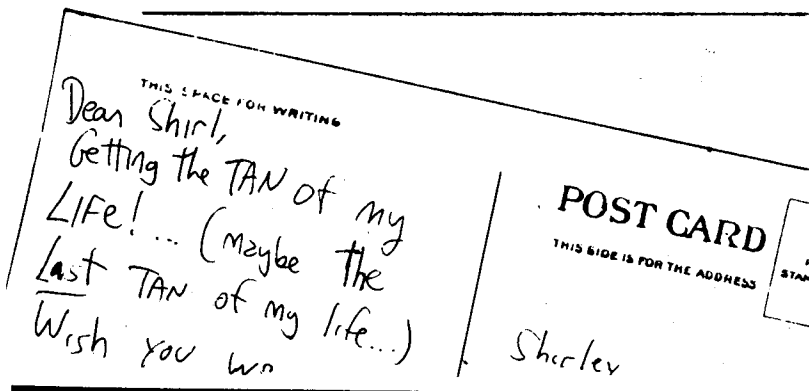 THIS SPACE FOR WRITING
Dear Shirl,
Getting the TAN of my
LIFE!... (maybe the
Last TAN of my life...)
Wish you
POST CARD
THIS SIDE IS FOR THE ADDRESS
Shirley